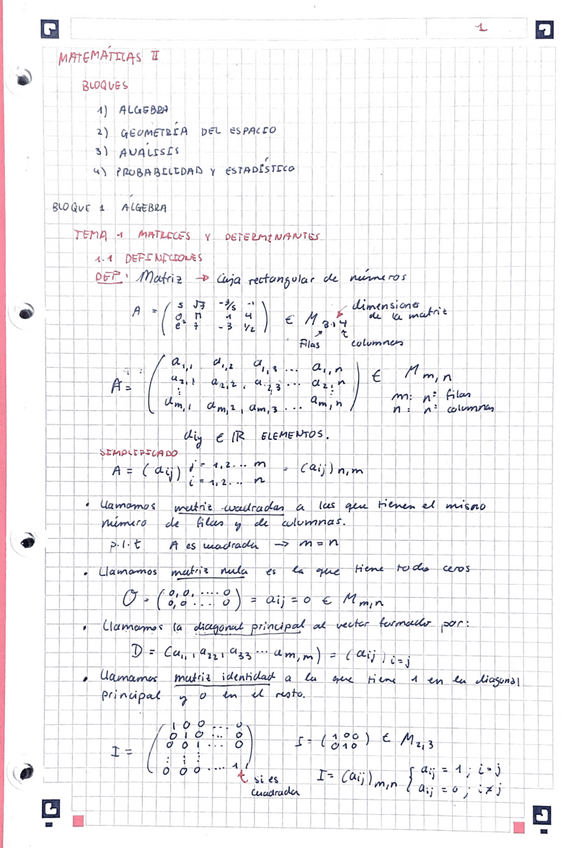 1
MATEMÁTICAS II
BLOQUES
1) ALGEBRA
2) GEOMETRÍA DEL ESPACIO
3) ANÁLISIS
4) PROBABILIDAD Y ESTADÍSTICO
BLOQUE 1 ÁLGEBRA
TEMA 1 MATRICES Y DETERMINANTES
1.1 DEFINICIONES
DEF: Matriz → Caja rectangular de números
A = ( 5 √3 -3/5 -1
0 π 1 4
e² 7 -3 1/2 ) ∈ M 3,4
dimensiones de la matriz
filas columnas
A = ( a1,1 a1,2 a1,3 ... a1,n
a2,1 a2,2 a2,3 ... a2,n
⋮
am,1 am,2 am,3 ... am,n ) ∈ Mm,n
m: nº filas
n: nº columnas
aij ∈ ℝ ELEMENTOS.
SIMPLIFICADO
A = (aij) j = 1,2... m = (aij) n,m
i = 1,2... n
• Llamamos matriz cuadradas a las que tienen el mismo
número de filas y de columnas.
p.l.t A es cuadrada → m = n
• Llamamos matriz nula es la que tiene todo ceros
O = ( 0,0, ..... 0
0,0 ..... 0 ) = aij = 0 ∈ Mm,n
• Llamamos la diagonal principal al vector formado por:
D = (a11, a22, a33 ... am,m) = (aij) i=j
• Llamamos matriz identidad a la que tiene 1 en la diagonal
principal y 0 en el resto.
I = ( 1 0 0 ... 0
0 1 0 ... 0
0 0 1 ... 0
⋮ ⋮ ⋮
0 0 0 .... 1 )
si es cuadrada
I = ( 1 0 0
0 1 0 ) ∈ M2,3
I = (aij)m,n { aij = 1; i = j
aij = 0; i ≠ j